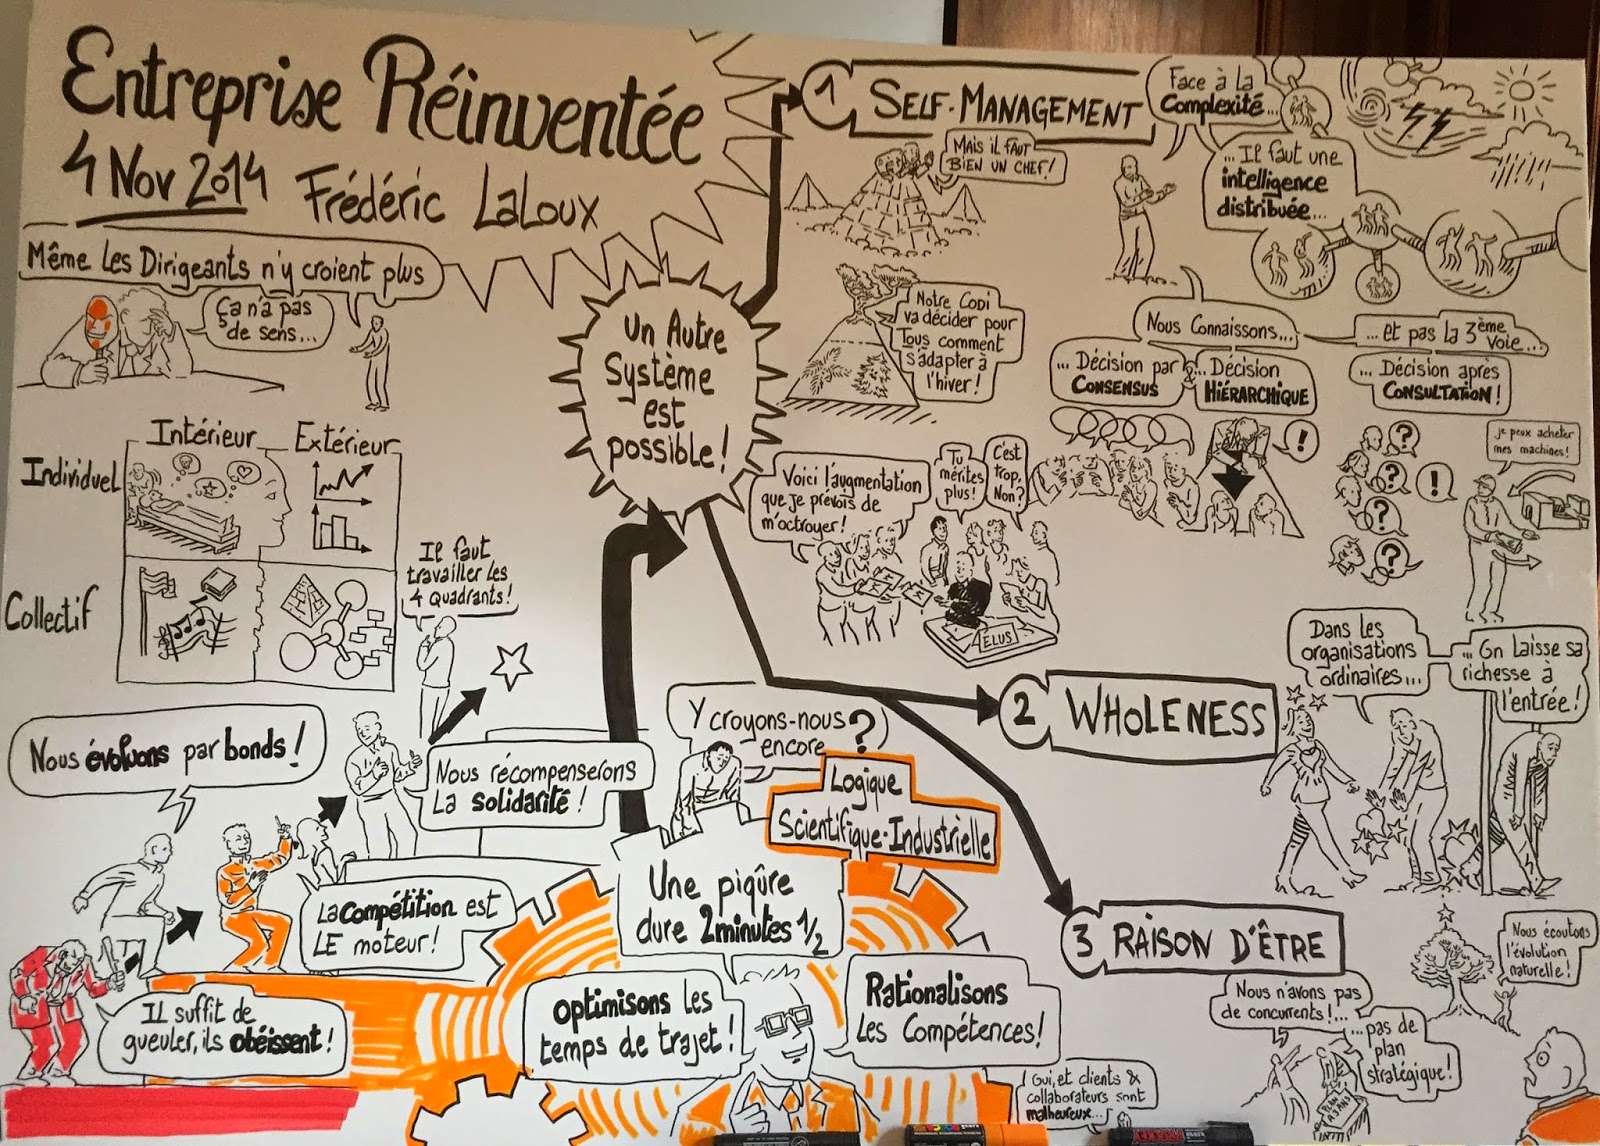 Entreprise Réinventée
4 Nov 2014 Frédéric Laloux
Même Les Dirigeants n'y croient plus
Ça n'a pas
de sens...
Intérieur
Extérieur
Individuel
Collectif
Il faut
travailler les
4 quadrants!
Nous évoluons par bonds!
Il suffit de
gueuler, ils obéissent!
La compétition est
LE moteur!
Nous récompenserons
La solidarité!
Y croyons-nous
encore ?
Logique
Scientifique-Industrielle
Une piqûre
dure 2minutes 1/2
optimisons les
temps de trajet!
Rationalisons
Les Compétences!
Oui, et clients &
collaborateurs sont
malheureux...
Un Autre
Système
est
possible!
1 SELF-MANAGEMENT
Mais il faut
bien un chef!
Face à la
Complexité...
... Il faut une
intelligence
distribuée...
Notre CoDi
va décider pour
Tous comment
s'adapter à
l'hiver!
Nous Connaissons...
... Décision par
CONSENSUS
... Décision
HIÉRARCHIQUE
!
... et pas la 3ème
voie...
... Décision après
CONSULTATION!
?
?
?
?
!
je peux acheter
mes machines!
Voici l'augmentation
que je prévois de
m'octroyer!
Tu
mérites
plus!
C'est
trop,
Non?
ELUS
2 WHOLENESS
Dans les
organisations
ordinaires...
... On laisse sa
richesse à
l'entrée!
3 RAISON D'ÊTRE
Nous écoutons
l'évolution
naturelle!
Nous n'avons pas
de concurrents!...
... pas de
plan
stratégique!
PLAN
À 3 ANS